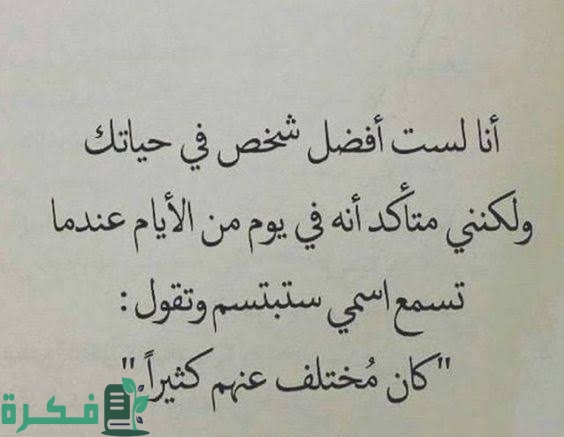 أنا لست أفضل شخص في حياتك
ولكنني متأكد أنه في يوم من الأيام عندما
تسمع اسمي ستبتسم وتقول :
"كان مُختلف عنهم كثيراً."
فكرة